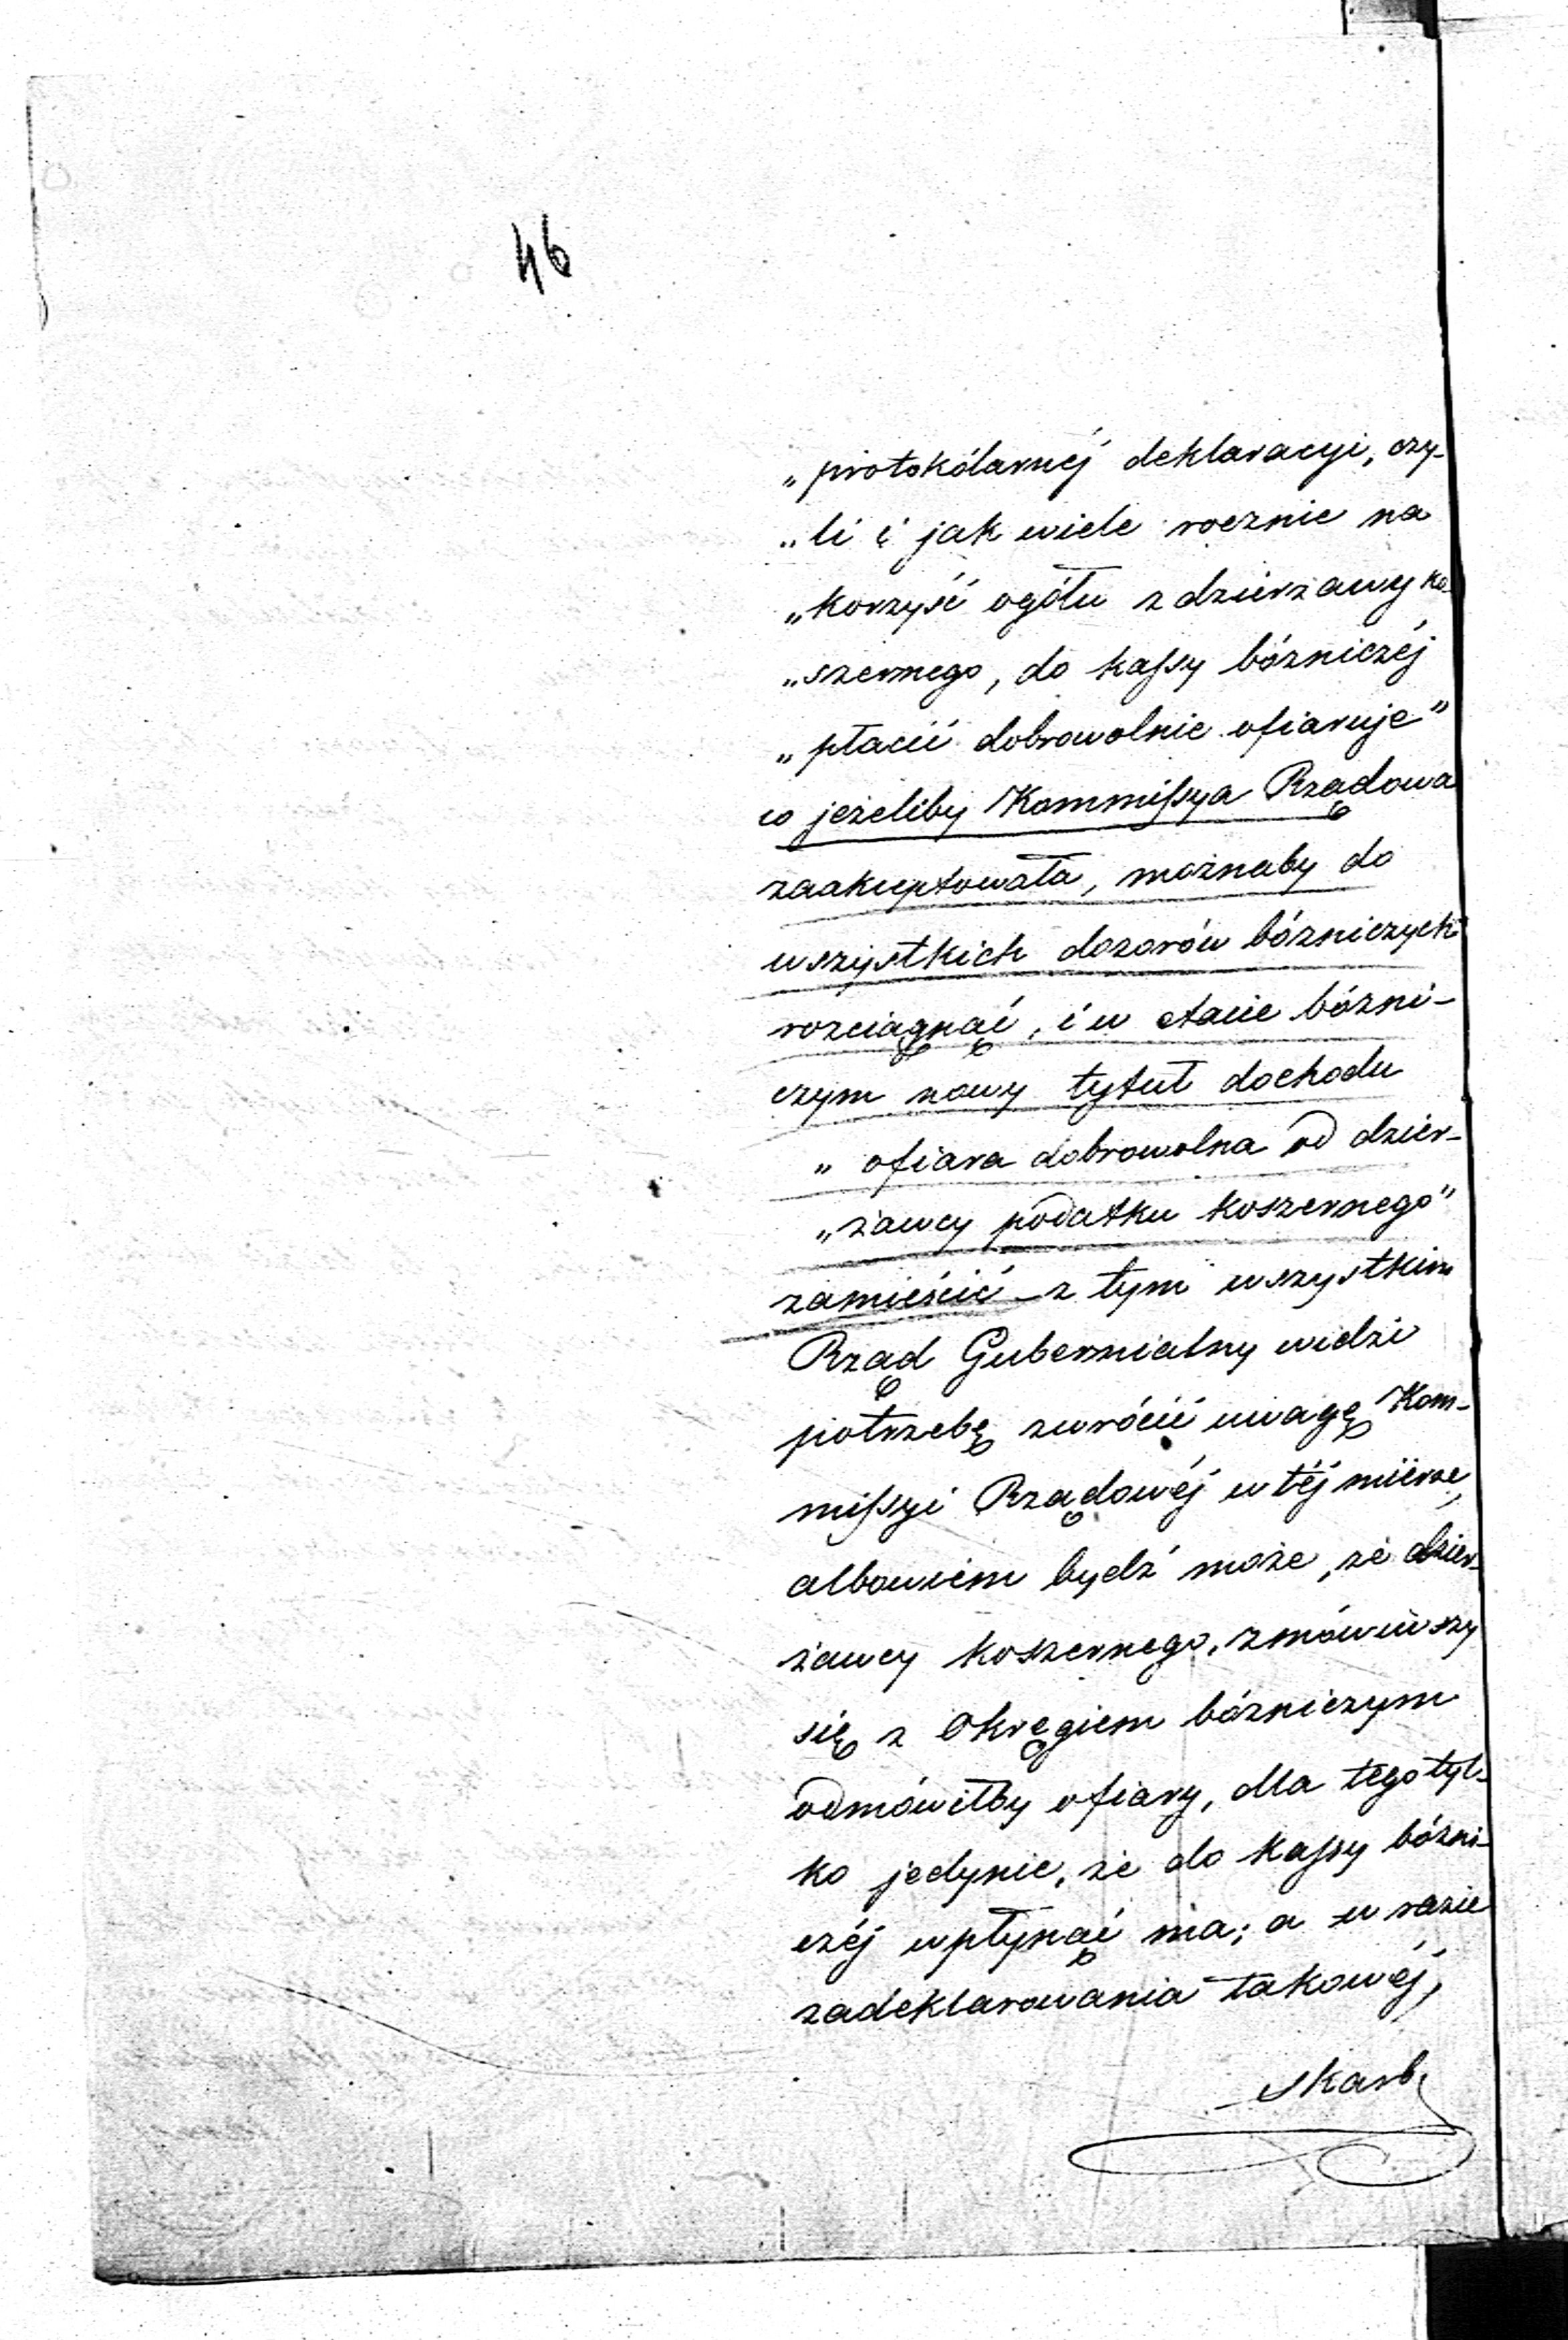 46
„protokólarnéj deklaracyi, czy-
„li i jak wiele rocznie na
„korzyść ogółu z dzierżawy ko-
„szernego, do kaſsy bóżniczéj
„płacić dobrowolnie ofiaruje”
co jeżeliby Kommiſsya Rządowa
zaakceptowała, możnaby do
wszystkich dozorów bóżniczych
rozciągnąć, i w etacie bóżni-
czym nowy tytuł dochodu
„ofiara dobrowolna od dzier-
„żawcy podatku koszernego”
zamieścić – z tym wszystkim
Rząd Gubernialny widzi
potrzebę zwrócić uwagę Kom-
miſsyi Rządowéj w téj mierze,
albowiem bydź może, że dzier-
żawcy koszernego, zmówiwszy
się z Okręgiem bóżniczym
odmówiłby ofiary, dla tego tyl-
ko jedynie, że do kaſsy bóżni-
czéj wpłynąć ma; a w razie
zadeklarowania takowéj,
Skarb